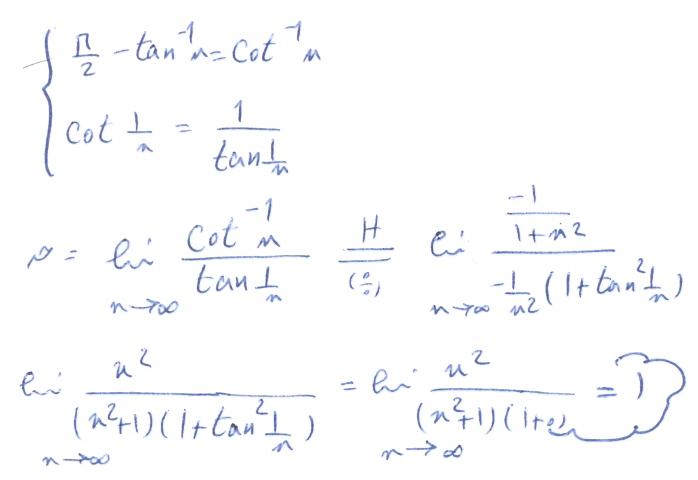 π/2 - tan⁻¹ n = cot⁻¹ n
cot 1/n = 1 / tan 1/n
= lim n→∞ cot⁻¹ n / tan 1/n H= (0/0) lim n→∞ (-1/(1+n²)) / (-1/n² (1+tan² 1/n))
lim n→∞ n² / ((n²+1)(1+tan² 1/n)) = lim n→∞ n² / ((n²+1)(1+0)) = 1